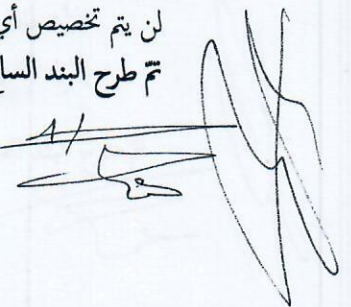 لن يتم تخصيص أي
تمّ طرح البند السا